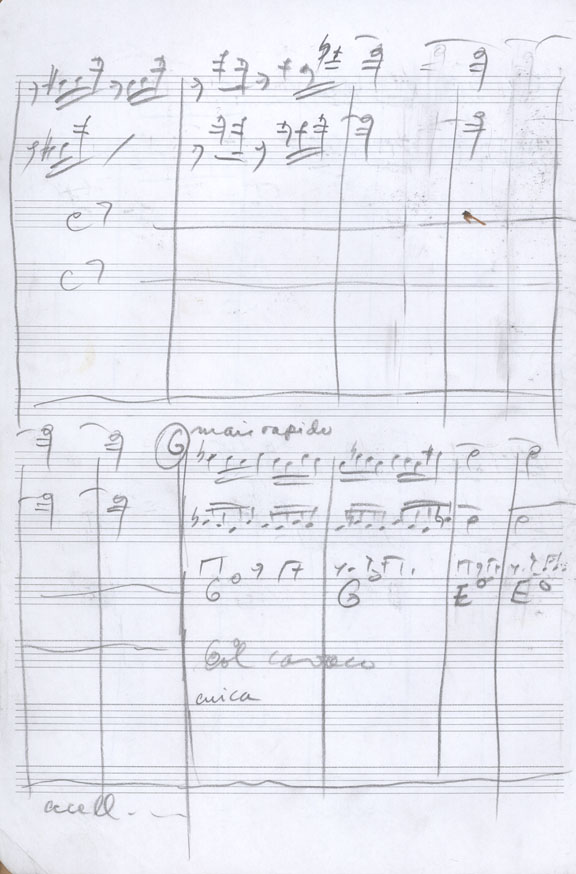 C7
C7
G mais rapido
G° G E° E°
Gol cavaco
cuica
accell.